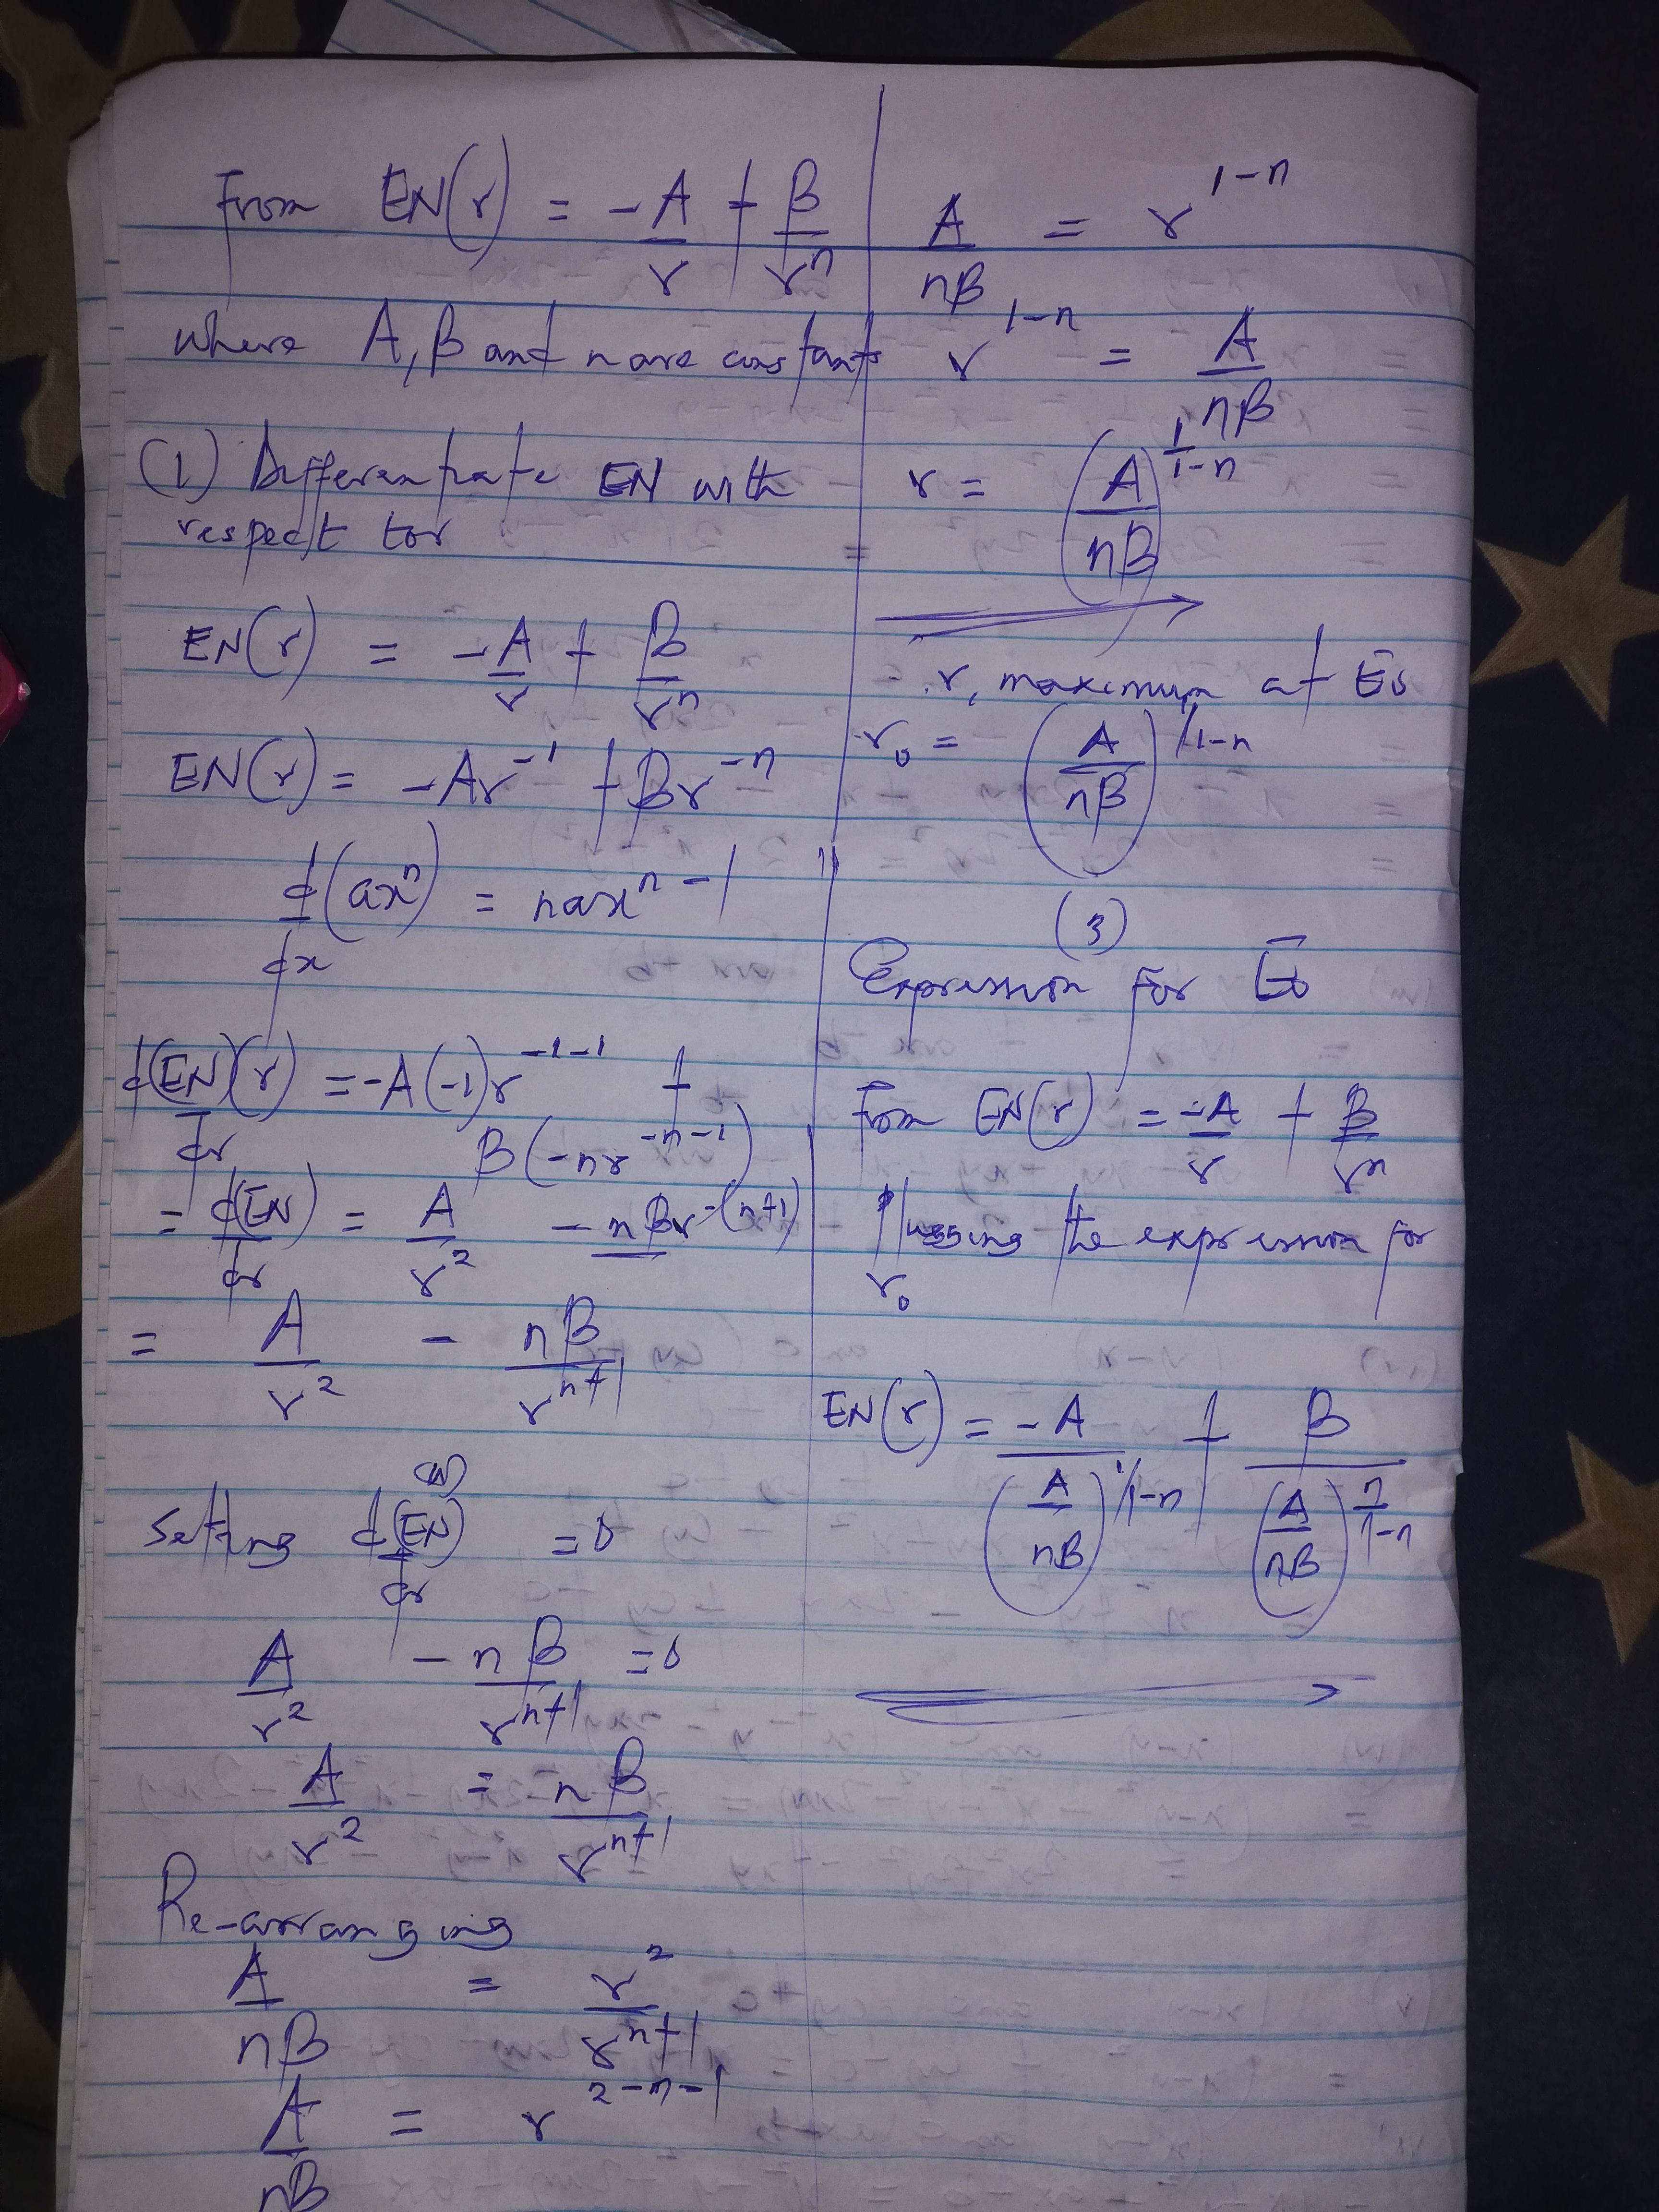 From EN(r) = -A/r + B/r^n
where A, B and n are constants
(1) Differentiate EN with
respect to r
EN(r) = -A/r + B/r^n
EN(r) = -Ar^-1 + Br^-n
d/dx (ax^n) = nax^n-1
d(EN)(r)/dr = -A(-1)r^-1-1 +
B(-nr^-n-1)
= d(EN)/dr = A/r^2 - nBr^-(n+1)
= A/r^2 - nB/r^n+1
(2)
Setting d(EN)/dr = 0
A/r^2 - nB/r^n+1 = 0
A/r^2 = nB/r^n+1
Re-arranging
A/nB = r^2/r^n+1
A/nB = r^2-n-1
A/nB = r^1-n
r^1-n = A/nB
r = (A/nB)^1/1-n
r, maximum at Eo
r₀ = (A/nB)^1/1-n
(3)
Expression for Eo
From EN(r) = -A/r + B/r^n
Plugging the expression for
r₀
EN(r) = -A/(A/nB)^1/1-n + B/(A/nB)^n/1-n